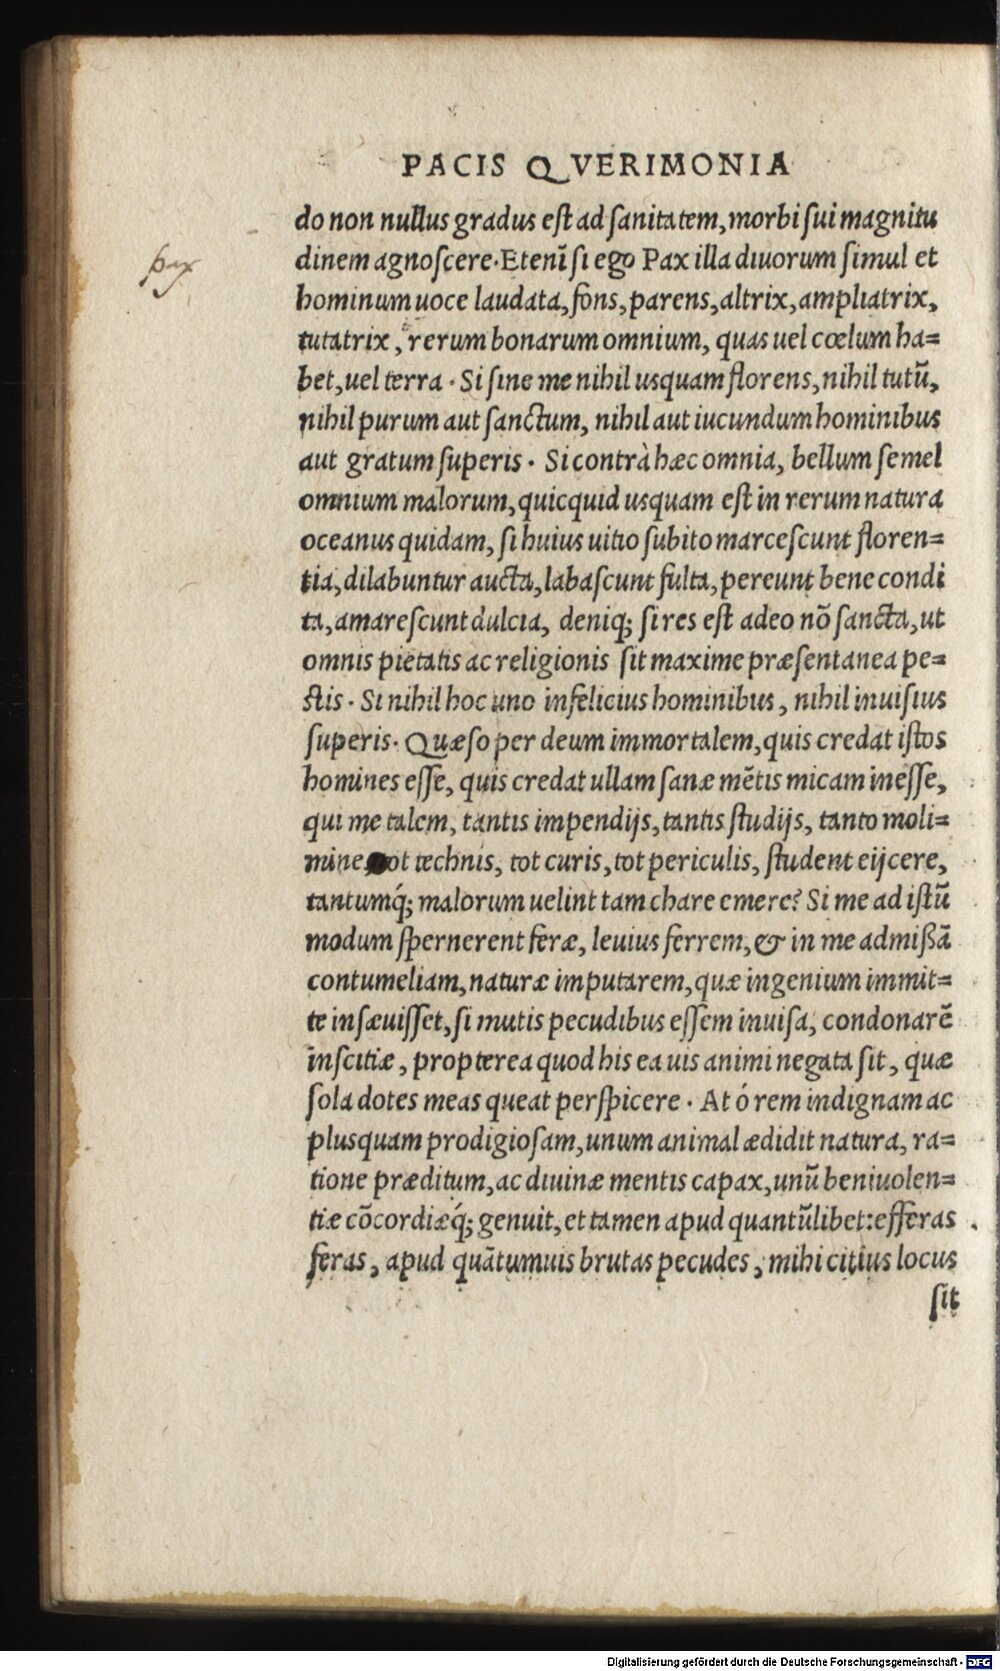 PACIS QVERIMONIA
do non nullus gradus est ad sanitatem, morbi sui magnitu
pax
dinem agnoscere. Etenī si ego Pax illa diuorum simul et
hominum uoce laudata, fons, parens, altrix, ampliatrix,
tutatrix, rerum bonarum omnium, quas uel cœlum ha=
bet, uel terra. Si sine me nihil usquam florens, nihil tutū,
nihil purum aut sanctum, nihil aut iucundum hominibus
aut gratum superis. Si contrà hæc omnia, bellum semel
omnium malorum, quicquid usquam est in rerum natura
oceanus quidam, si huius uitio subito marcescunt floren=
tia, dilabuntur aucta, labascunt fulta, pereunt bene condi
ta, amarescunt dulcia, deniq; si res est adeo nō sancta, ut
omnis pietatis ac religionis sit maxime præsentanea pe=
stis. Si nihil hoc uno infelicius hominibus, nihil inuisius
superis. Quæso per deum immortalem, quis credat istos
homines esse, quis credat ullam sanæ mētis micam inesse,
qui me talem, tantis impendijs, tantis studijs, tanto moli=
mine, tot technis, tot curis, tot periculis, student eijcere,
tantumq́; malorum uelint tam chare emere? Si me ad istū
modum spernerent feræ, leuius ferrem, & in me admißā
contumeliam, naturæ imputarem, quæ ingenium immit=
te insæuisset, si mutis pecudibus essem inuisa, condonarē
inscitiæ, propterea quod his ea uis animi negata sit, quæ
sola dotes meas queat perspicere. At ó rem indignam ac
plusquam prodigiosam, unum animal ædidit natura, ra=
tione præditum, ac diuinæ mentis capax, unū beniuolen=
tiæ cōcordiæq́; genuit, et tamen apud quantūlibet: efferas
feras, apud quātumuis brutas pecudes, mihi citius locus
sit
Digitalisierung gefördert durch die Deutsche Forschungsgemeinschaft - DFG